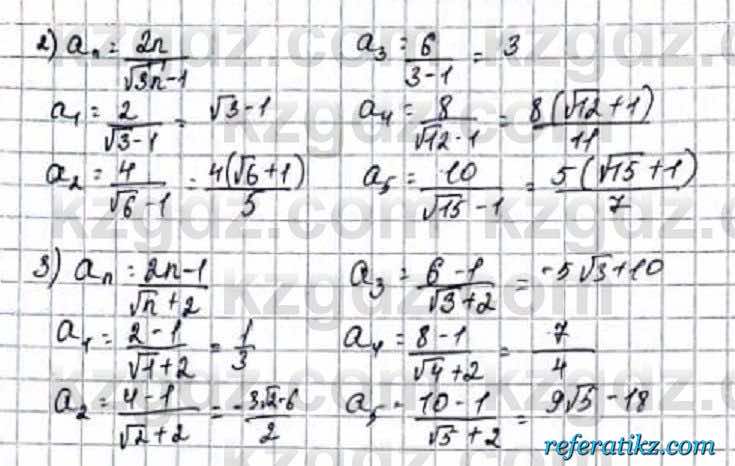 2) aₙ = 2n/(√3n - 1)
a₃ = 6/(3-1) = 3
a₁ = 2/(√3 - 1) = √3 - 1
a₄ = 8/(√12 - 1) = 8(√12 + 1)/11
a₂ = 4/(√6 - 1) = 4(√6 + 1)/5
a₅ = 10/(√15 - 1) = 5(√15 + 1)/7
3) aₙ = 2n-1/(√n + 2)
a₃ = 6-1/(√3 + 2) = -5√3 + 10
a₁ = 2-1/(√1 + 2) = 1/3
a₄ = 8-1/(√4 + 2) = 7/4
a₂ = 4-1/(√2 + 2) = -3√2-6/2
a₅ = 10-1/(√5 + 2) = 9√5 - 18
kzgdz.com
referatikz.com